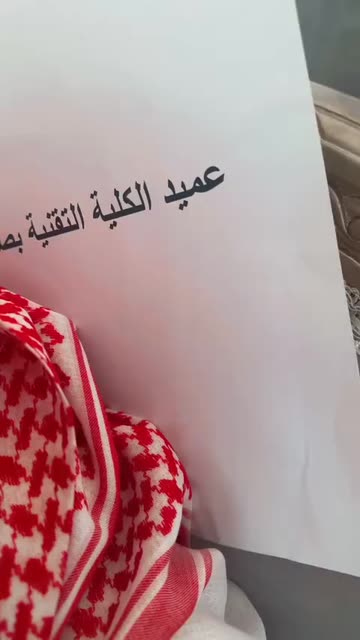 عميد الكلية التقنية